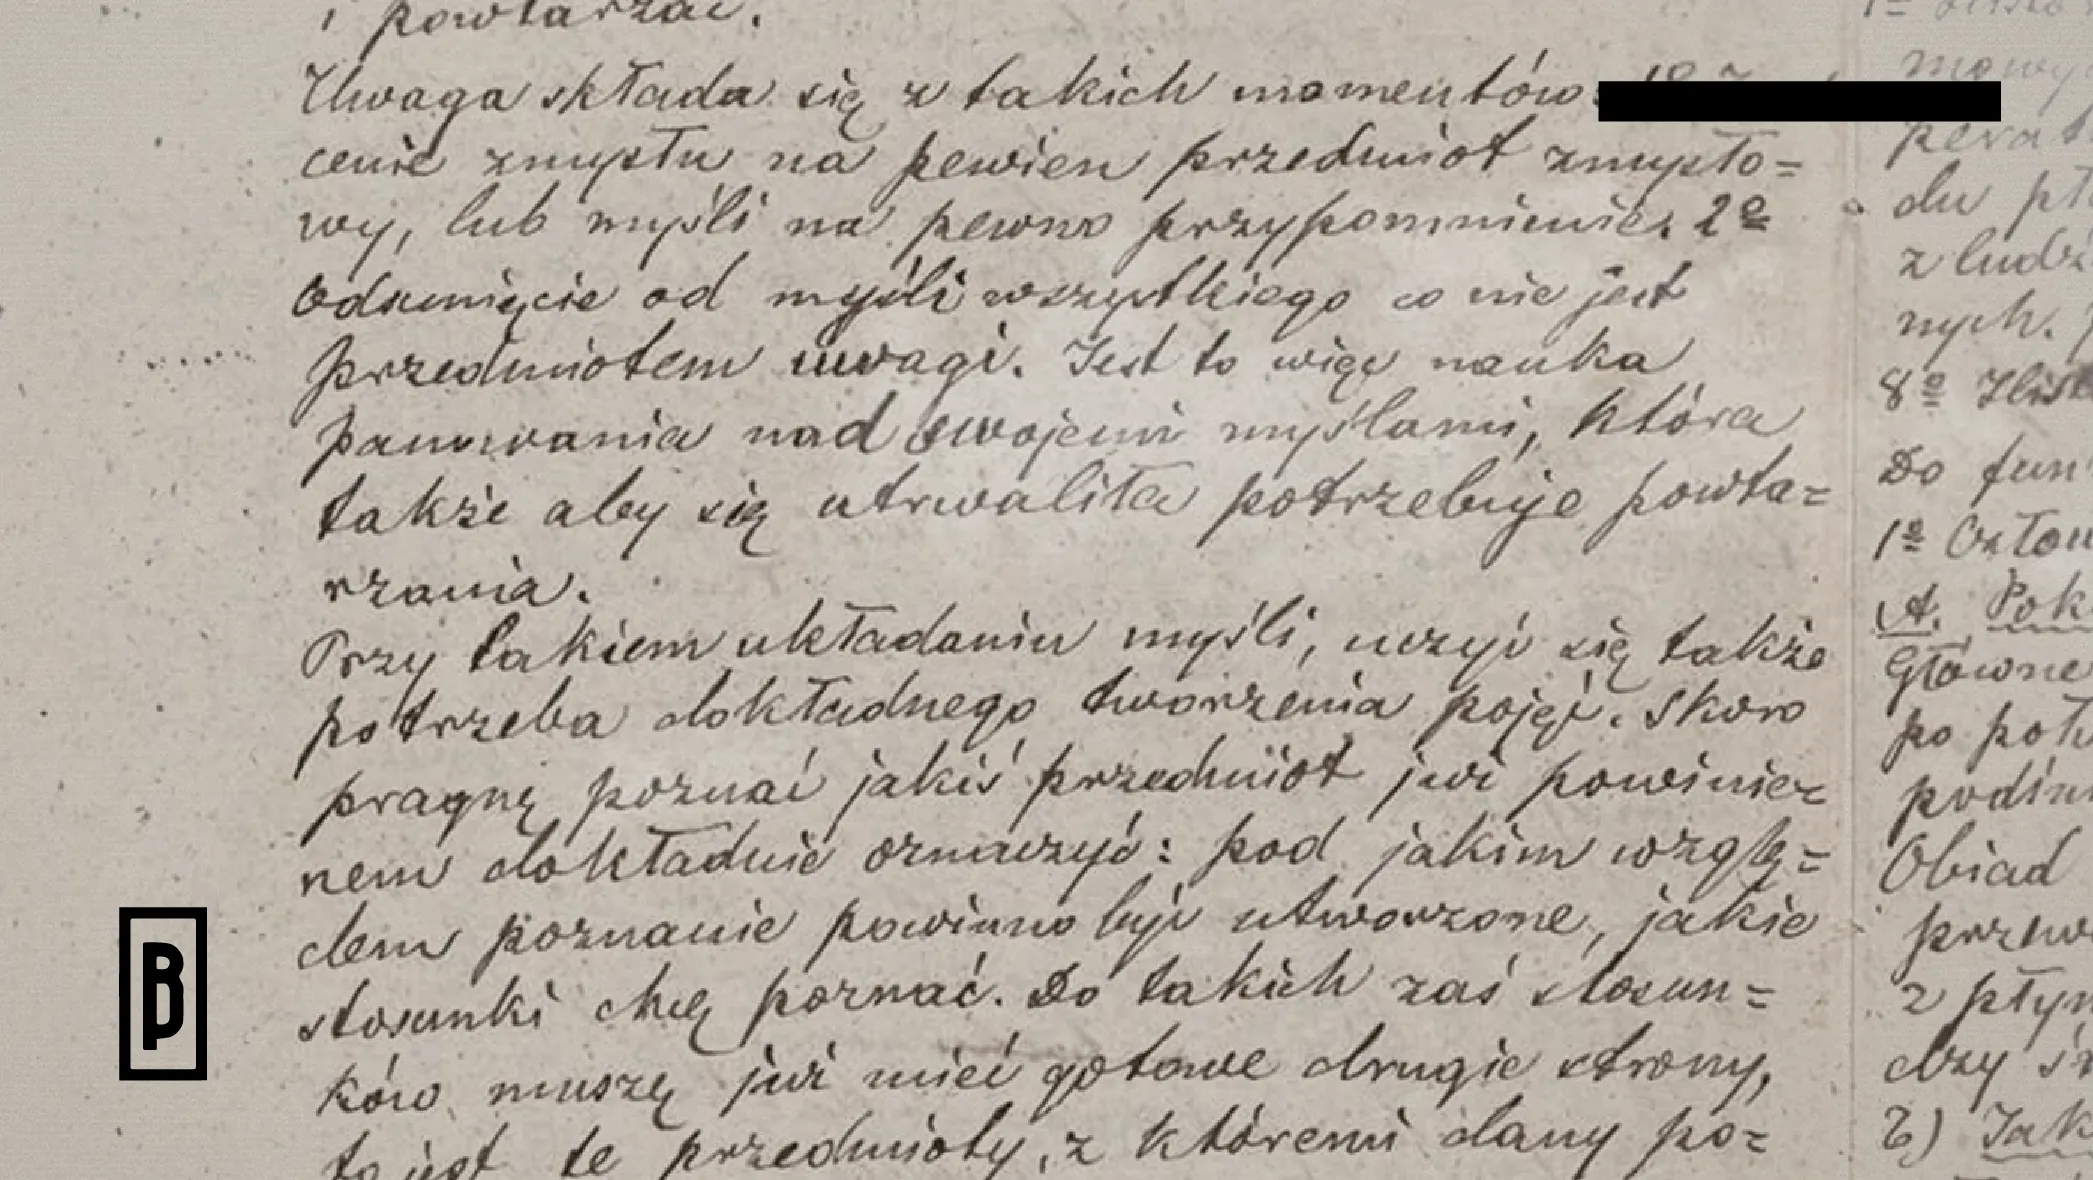 i powtarzać.
Uwaga składa się z takich momentów:
cenie zmysłu na pewien przedmiot zmysło=
wy, lub myśli na pewno przypomnienie. 2º
Odsunięcie od myśli wszystkiego co nie jest
przedmiotem uwagi. Jest to więc nauka
panowania nad swojemi myślami, która
także aby się utrwaliła potrzebuje powta=
rzania.
Przy takiem układaniu myśli, uczyć się także
potrzeba dokładnego tworzenia pojęć. Skoro
pragnę poznać jakiś przedmiot już powinie=
nem dokładnie oznaczyć: pod jakim wzglę=
dem poznanie powinno być utworzone, jakie
stosunki chcę poznać. Do takich zaś stosun=
ków muszę już mieć gotowe drugie strony,
to jest te przedmioty, z któremi dany po=
mowy
du
z ludz
nych.
8º
Do fun
1º Człon
A. Pok
Główne
po poł
Obiad
przew
2 płyn
b) Jak
B